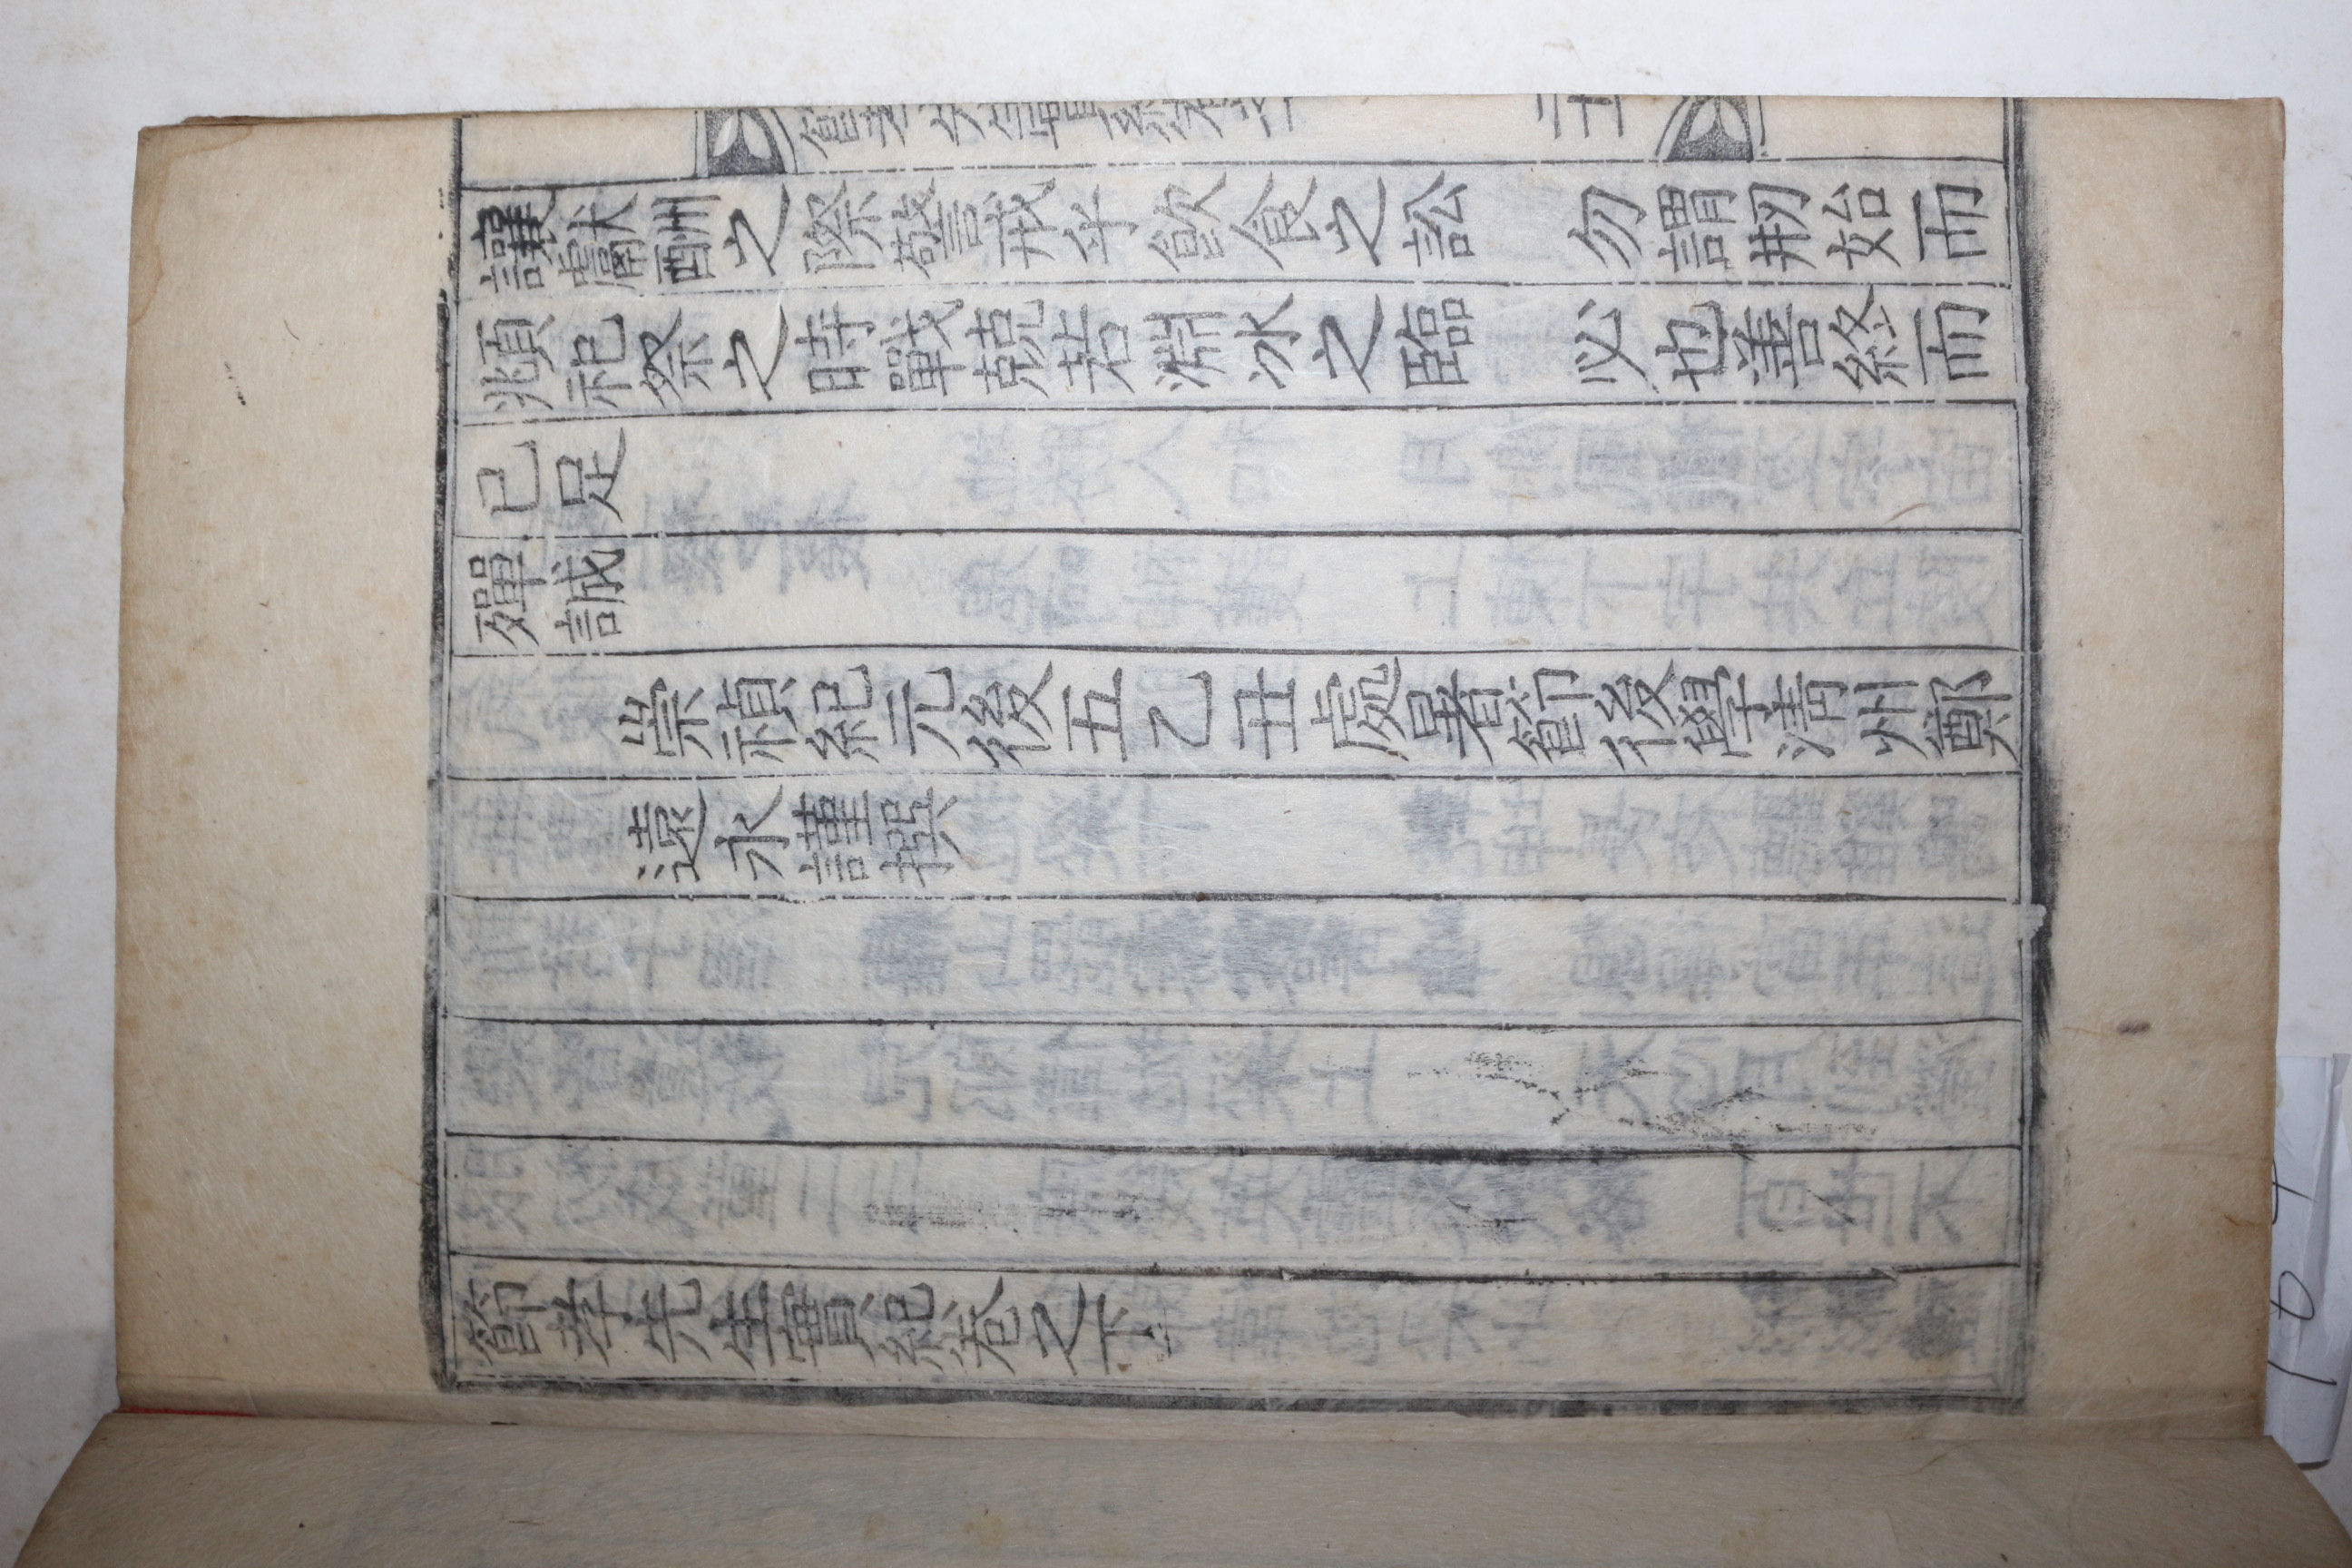 讓獻酬之際警戒乎飮食之訟 勿謂刱始而
頫祀祭之時戰兢若淵冰之臨 必也善終而
已足
殫誠
崇禎紀元後五乙丑處暑節後學淸州鄭
遠永謹撰
節孝先生實紀卷之下
節孝先生實紀卷之下
二十